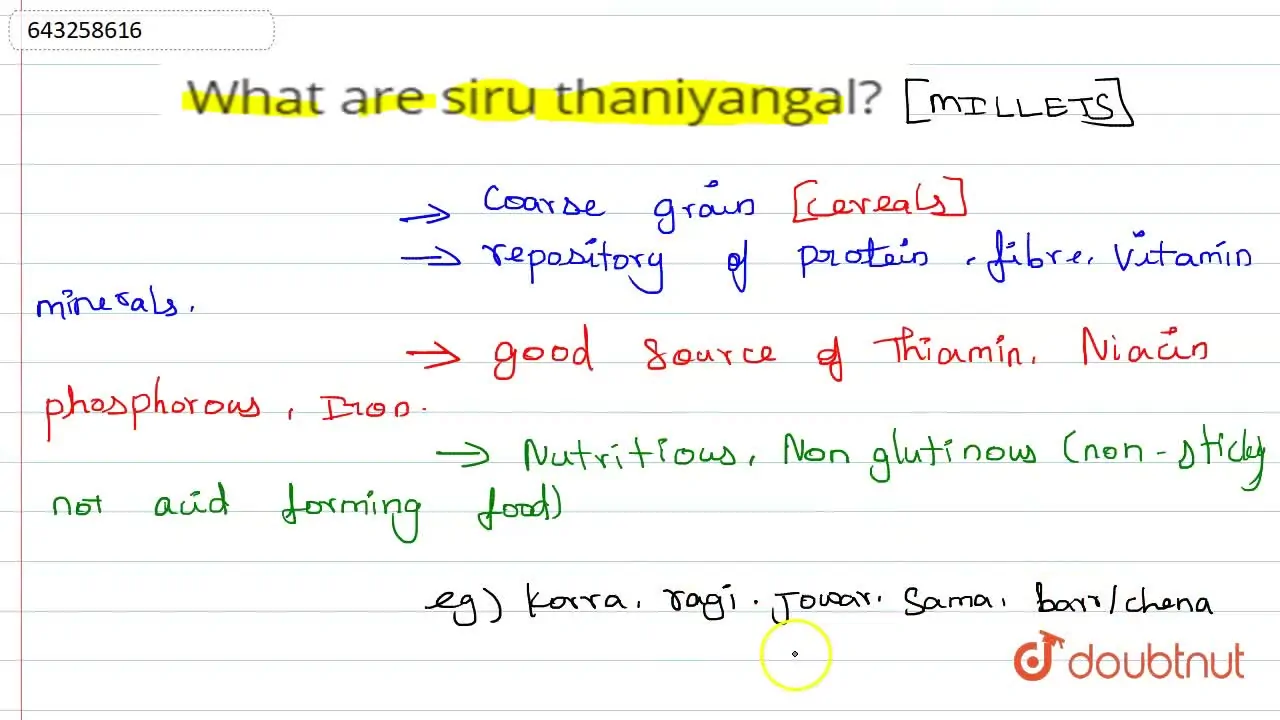 643258616
What are siru thaniyangal? [MILLETS]
→ Coarse grain [Cereals]
→ repository of protein, fibre, Vitamin
minerals.
→ good source of Thiamin, Niacin
phosphorous, Iron.
→ Nutritious, Non glutinous (non-sticky
not acid forming food)
eg) Korra, ragi, Jowar, Sama, barr/chena
doubtnut